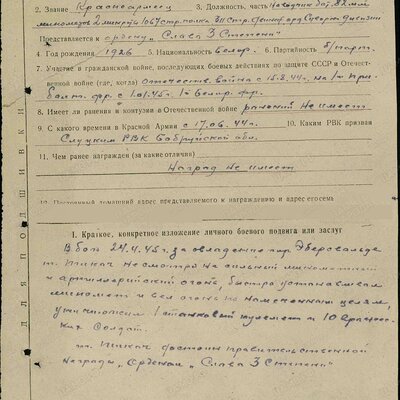 2. Звание Красноармеец 3. Должность, часть Наводчик бат. 82 мм
минометов 2 мин. 1067 стр. полка
Представляется к ордену „Слава 3 Степени“
4. Год рождения 1926 5. Национальность белор. 6. Партийность б/парт.
7. Участие в гражданской войне, последующих боевых действиях по защите СССР и Отечест-
венной войне (где, когда) Отечеств. война с 15.8.44г. на 1м При-
балт. фр. с 1.01.45г. 1й белор. фр.
8. Имеет ли ранения и контузии в Отечественной войне ранений Не имеет
9. С какого времени в Красной Армии с 17.06.44г. 10. Каким РВК призван
Слуцким РВК Бобруйской обл.
11. Чем ранее награжден (за какие отличия)
Наград Не имеет
12. Постоянный домашний адрес представляемого к награждению и адрес его семьи
I. Краткое, конкретное изложение личного боевого подвига или заслуг
В бою 24.4.45г. за овладение гор. Эберсвальде
т. несмотря на сильный минометный
и артиллерийский огонь, быстро устанавливал
миномет и вел огонь по намеченным целям,
уничтожил 1 станковый пулемет и 10 вражес-
ких Солдат.
т. достоин правительственной
Награды „Орденом „Слава 3 Степени“
ДЛЯ ПОДШИВКИ